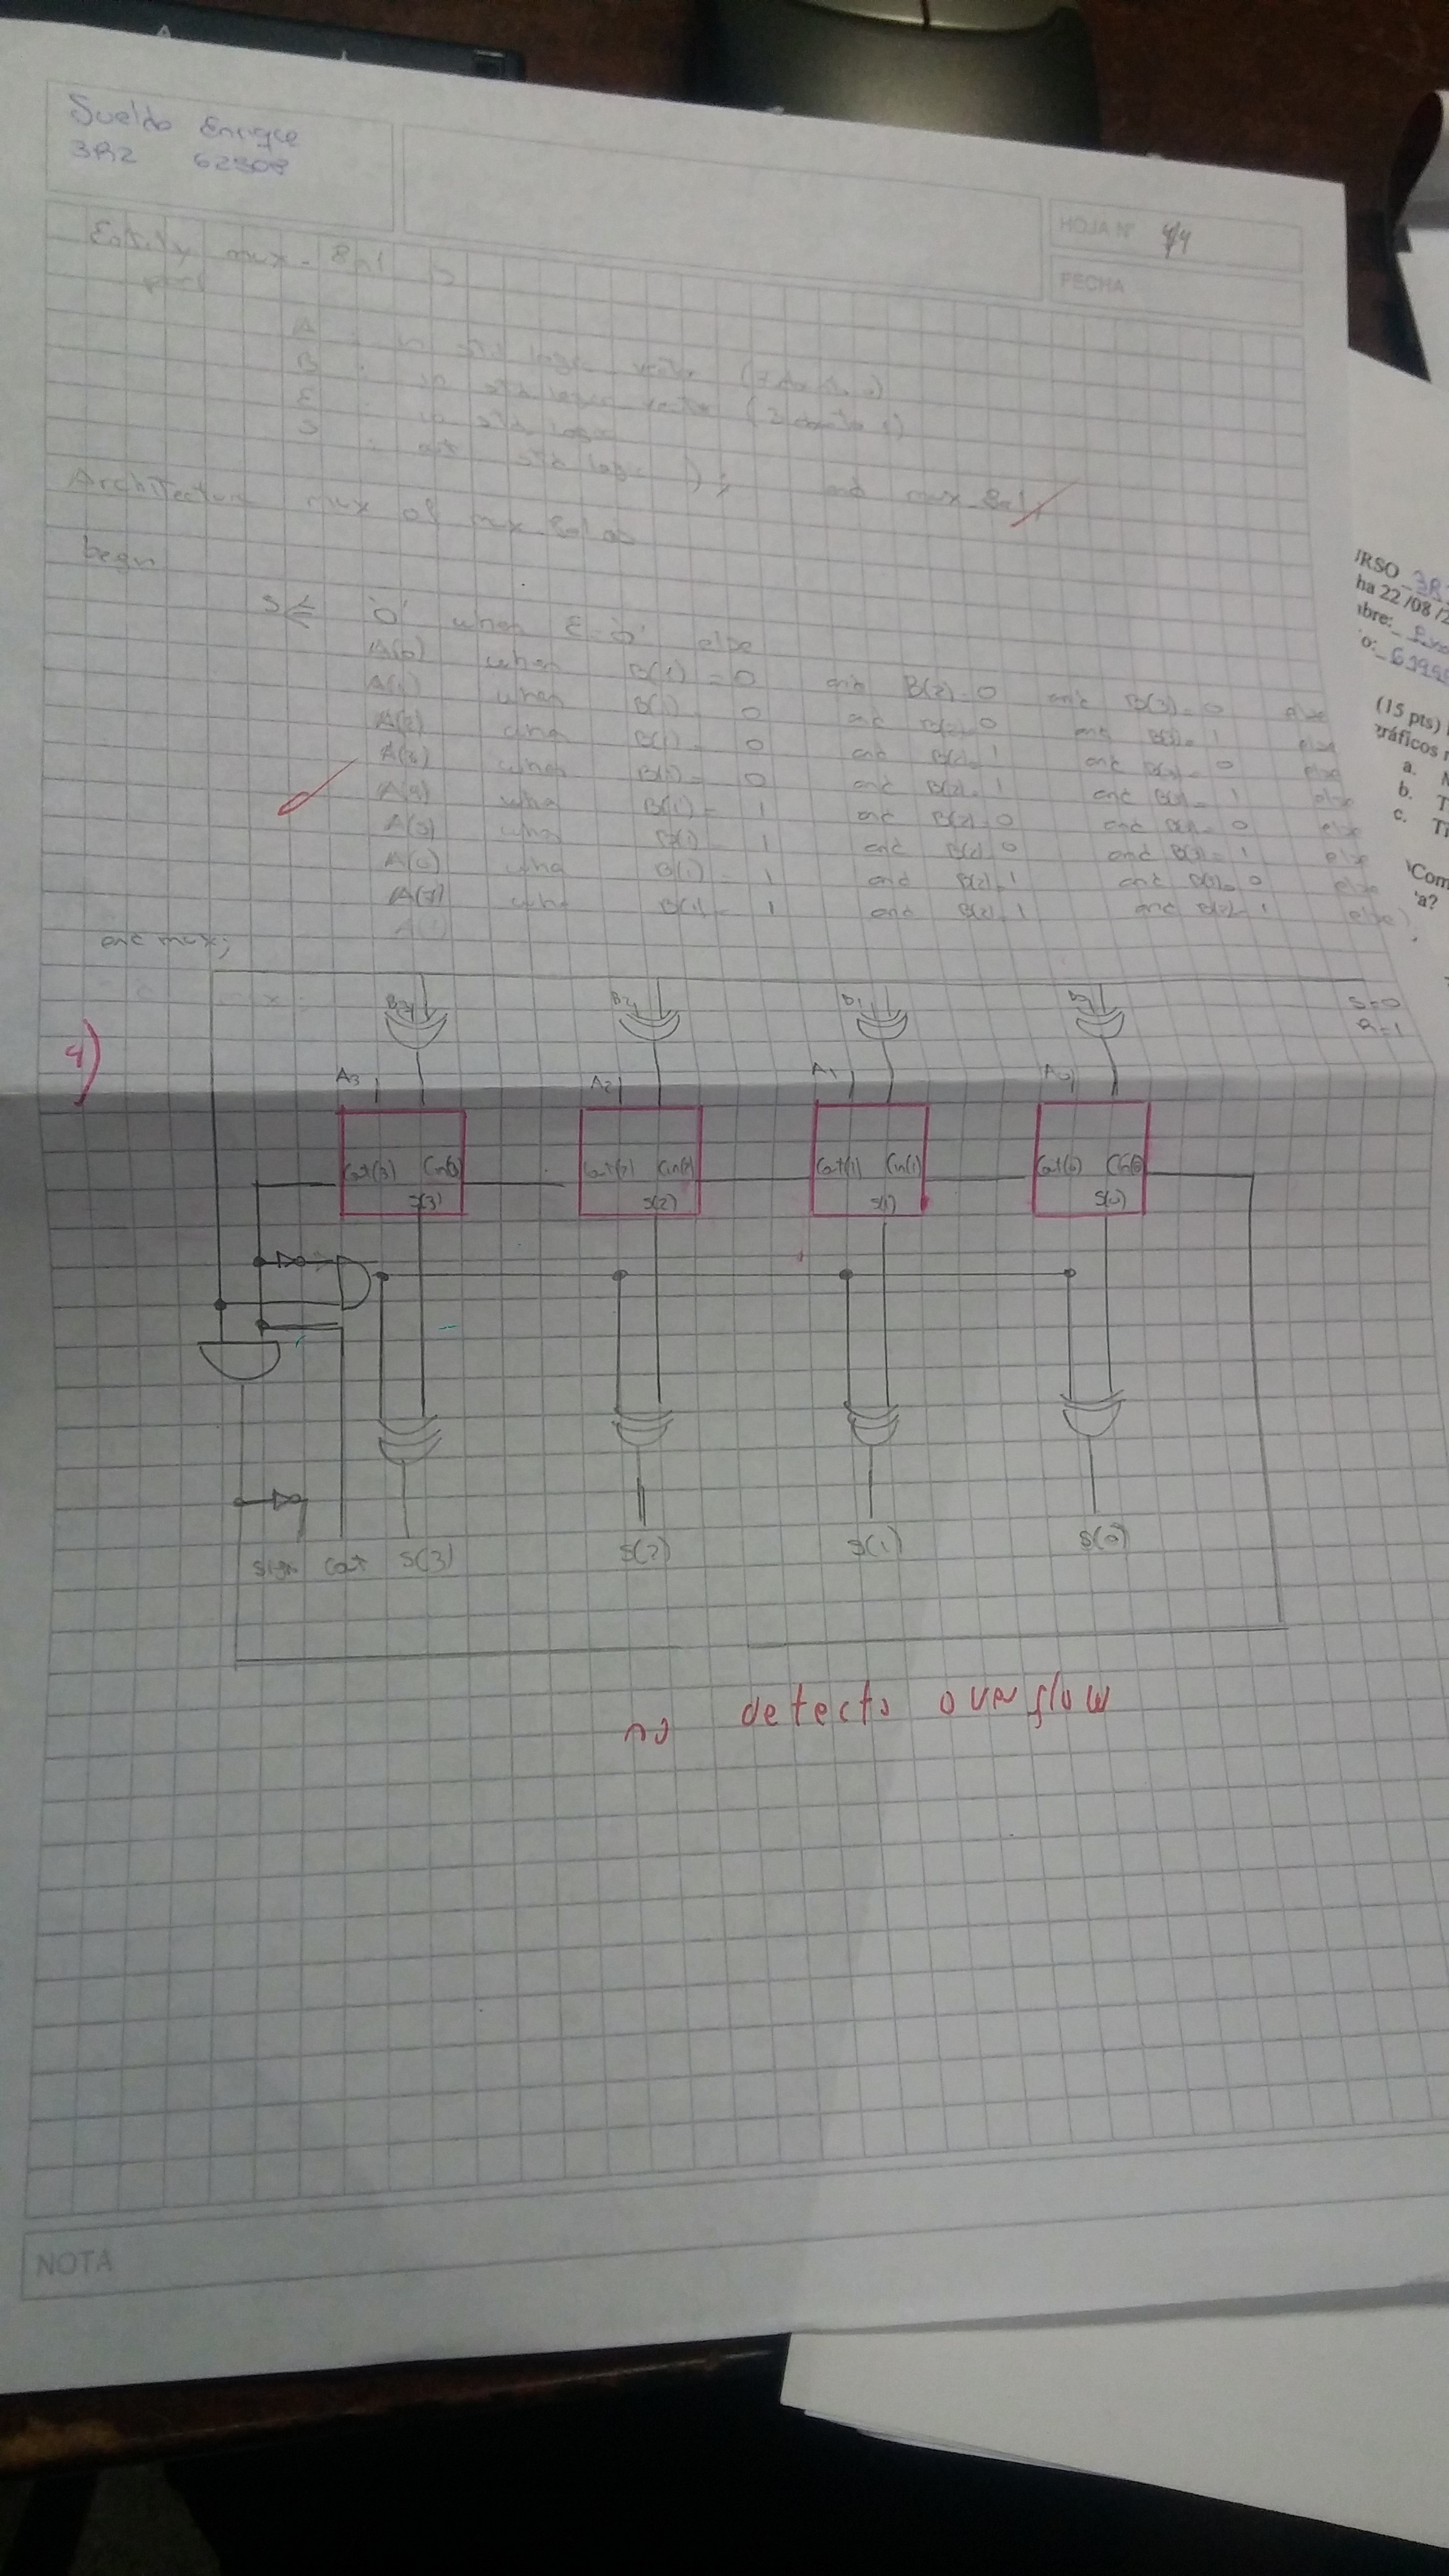 Sueldo Enrique
3R2 62508
HOJA N° 4/4
FECHA
Entity mux_8a1 is
port
A : in std logic vector (7 downto 0)
B : in std logic vector (3 downto 1)
E : in std logic
S : out std logic ); end mux_8a1;
Architecture mux of mux_8a1 is
begin
S<= '0' when E='0' else
A(0) when B(1)=0 and B(2)=0 and B(3)=0 else
A(1) when B(1)=0 and B(2)=0 and B(3)=1 else
A(2) when B(1)=0 and B(2)=1 and B(3)=0 else
A(3) when B(1)=0 and B(2)=1 and B(3)=1 else
A(4) when B(1)=1 and B(2)=0 and B(3)=0 else
A(5) when B(1)=1 and B(2)=0 and B(3)=1 else
A(6) when B(1)=1 and B(2)=1 and B(3)=0 else
A(7) when B(1)=1 and B(2)=1 and B(3)=1 else
end mux;
S=0
R=1
4)
B3 B2 B1 B0
A3 A2 A1 A0
Cout(3) Cin(3) Cout(2) Cin(2) Cout(1) Cin(1) Cout(0) Cin(0)
S(3) S(2) S(1) S(0)
Sign Cout S(3) S(2) S(1) S(0)
no detecta overflow
NOTA
URSO 3R
ha 22/08/2
bre:
o:
(15 pts)
ráficos
a.
b. T
c. Ti
Com
a?